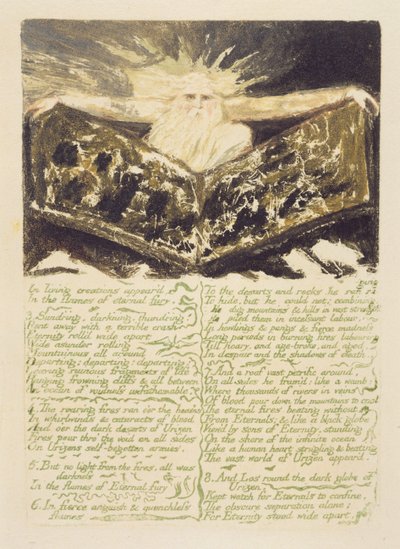 In living creations appear'd
In the flames of eternal fury.
3. Sund'ring, dark'ning, thund'ring!
Rent away with a terrible crash
Eternity roll'd wide apart
Wide asunder rolling
Mountainous all around
Departing; departing; departing:
Leaving ruinous fragments of life
Hanging frowning cliffs & all between
An ocean of voidness unfathomable.
4. The roaring fires ran o'er the heav'ns
In whirlwinds & cataracts of blood
And o'er the dark desarts of Urizen
Fires pour thro' the void on all sides
On Urizens self-begotten armies.
5. But no light from the fires. all was
darkness
In the flames of Eternal fury
6. In fierce anguish & quenchless
flames
ging
To the desarts and rocks he ran ra
To hide, but he could not: combining
He dug mountains & hills in vast strength,
He piled them in incessant labour,
In howlings & pangs & fierce madness
Long periods in burning fires labouring
Till hoary, and age-broke, and aged,
In despair and the shadows of death.
7. And a roof, vast petrific around,
On all sides he fram'd: like a womb;
Where thousands of rivers in veins
Of blood pour down the mountains to cool
The eternal fires beating without
From Eternals; & like a black globe
View'd by sons of Eternity, standing
On the shore of the infinite ocean
Like a human heart strugling & beating
The vast world of Urizen appear'd.
8. And Los round the dark globe of
Urizen,
Kept watch for Eternals to confine,
The obscure separation alone;
For Eternity stood wide apart,